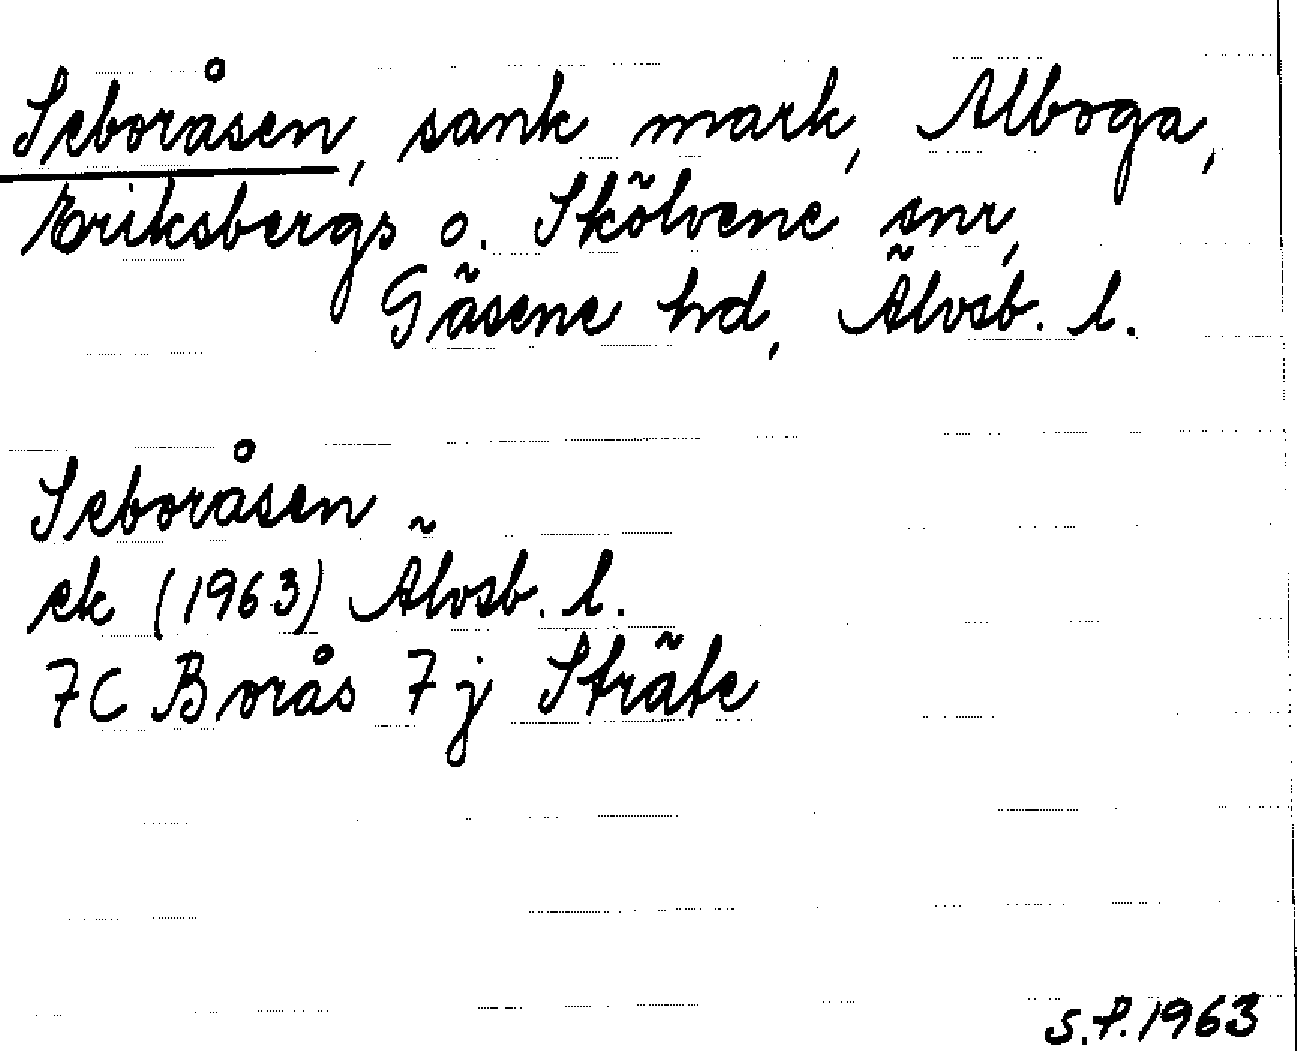 Seboråsen, sank mark, Alboga,
Eriksbergs o. Skölvene snr,
Gäsene hd, Älvsb. l.
Seboråsen
ek (1963) Älvsb. l.
7C Borås 7j Sträte
S.F. 1963